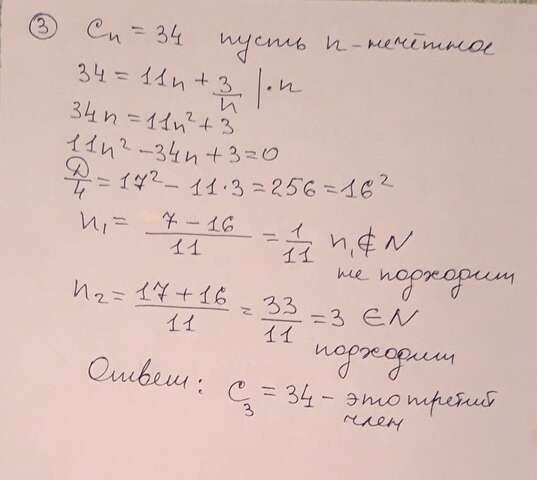 ③ Cn = 34 пусть n - нечётное
34 = 11n + 3/n | · n
34n = 11n² + 3
11n² - 34n + 3 = 0
Д/4 = 17² - 11·3 = 256 = 16²
n₁ = (7 - 16)/11 = 1/11 n₁ ∉ N
не подходит
n₂ = (17 + 16)/11 = 33/11 = 3 ∈ N
подходит
Ответ: C₃ = 34 - это третий
член